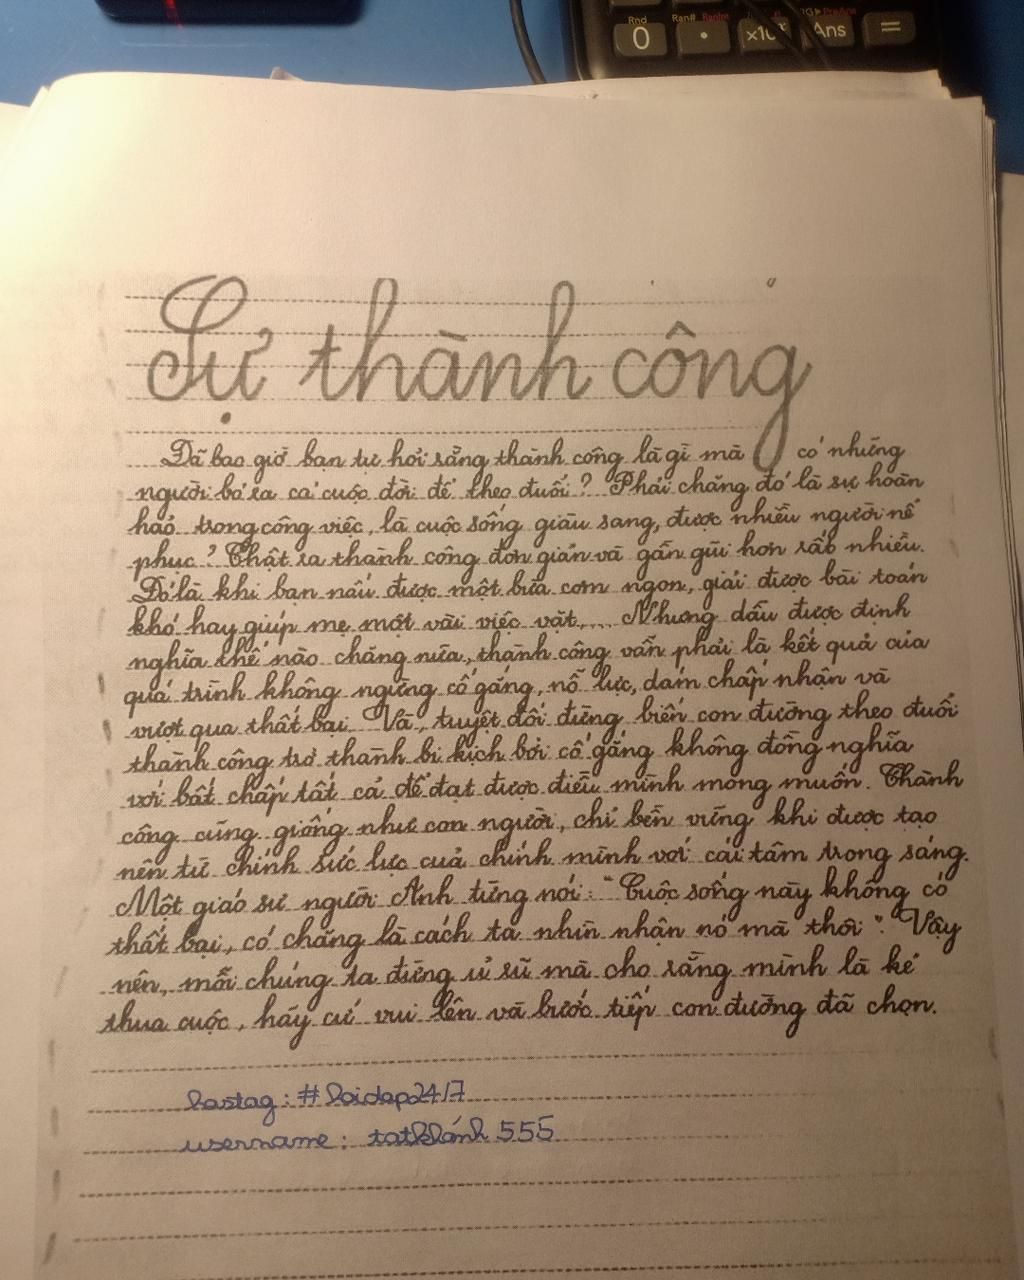 Rnd Ran# RanInt PreAns
0 . ×10ˣ Ans =
Sự thành công
Đã bao giờ bạn tự hỏi rằng thành công là gì mà có những
người bỏ ra cả cuộc đời để theo đuổi? Phải chăng đó là sự hoàn
hảo trong công việc, là cuộc sống giàu sang, được nhiều người nể
phục? Thật ra thành công đơn giản và gần gũi hơn rất nhiều.
Đó là khi bạn nấu được một bữa cơm ngon, giải được bài toán
khó hay giúp mẹ một vài việc vặt,... Nhưng dẫu được định
nghĩa thế nào chăng nữa, thành công vẫn phải là kết quả của
quá trình không ngừng cố gắng, nỗ lực, dám chấp nhận và
vượt qua thất bại. Và, tuyệt đối đừng biến con đường theo đuổi
thành công trở thành bi kịch bởi cố gắng không đồng nghĩa
với bất chấp tất cả để đạt được điều mình mong muốn. Thành
công cũng giống như con người, chỉ bền vững khi được tạo
nên từ chính sức lực của chính mình với cái tâm trong sáng.
Một giáo sư người Anh từng nói: "Cuộc sống này không có
thất bại, có chăng là cách ta nhìn nhận nó mà thôi". Vậy
nên, mỗi chúng ta đừng ủ rũ mà cho rằng mình là kẻ
thua cuộc, hãy cứ vui lên và bước tiếp con đường đã chọn.
hastag: #hoidap24/7
username: tatkhánh555